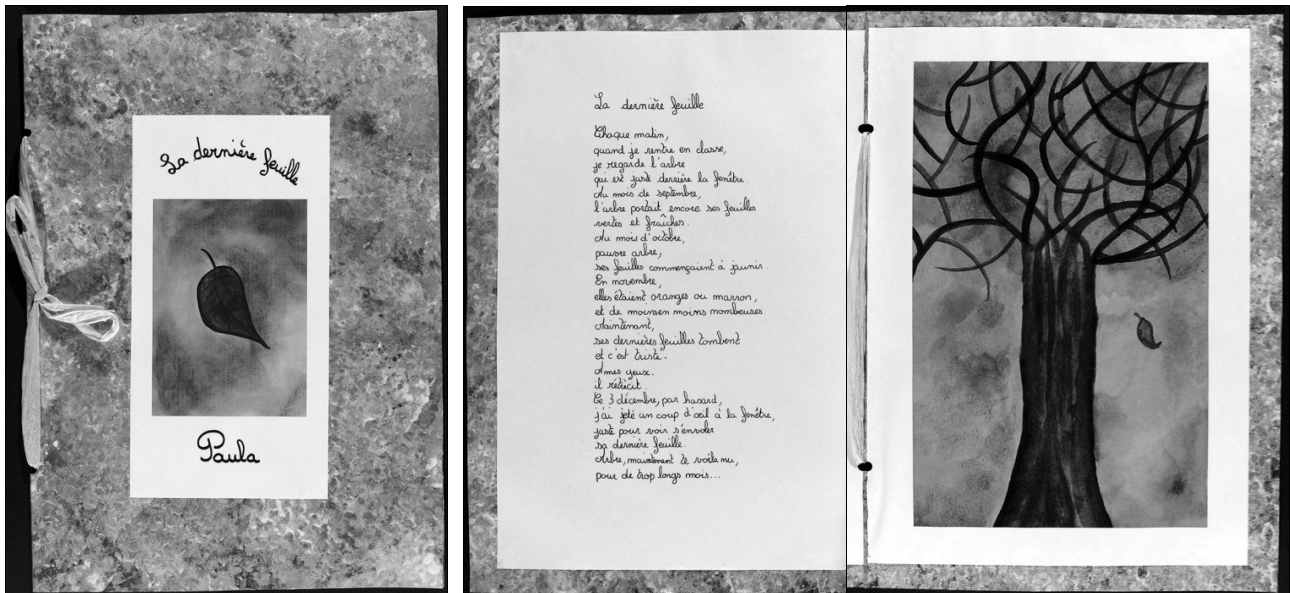 La dernière feuille
Paula
La dernière feuille
Chaque matin,
quand je rentre en classe,
je regarde l'arbre
qui est juste derrière la fenêtre.
Au mois de septembre,
l'arbre portait encore ses feuilles
vertes et fraîches.
Au mois d'octobre,
pauvre arbre,
ses feuilles commençaient à jaunir.
En novembre,
elles étaient oranges ou marron,
et de moins en moins nombreuses.
Maintenant,
ses dernières feuilles tombent
et c'est triste.
A mes yeux,
il rétrécit.
Ce 3 décembre, par hasard,
j'ai jeté un coup d'œil à la fenêtre,
juste pour voir s'envoler
sa dernière feuille.
Arbre, maintenant te voila nu,
pour de trop longs mois...